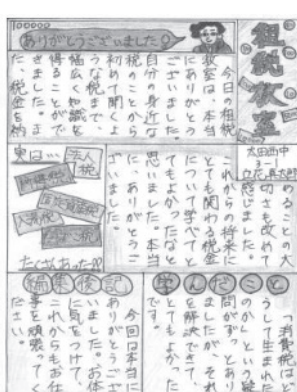 租税教室
ありがとうございました！
今日の租税
教室は、本当
にありがとう
ございました。
自分の身近な
税のことから
初めて聞くよ
うな税まで、
幅広く知識を
得ることがで
きました。正
た、税金を納
太田西中
3-1
立花真太郎
めることの大
切さも改めて
感じました。
これからの将来に
とても関わる税金
について学べて
とてもよかったなと
思いました。本当
に、ありがとうご
ざいました。
実は…
法人税
所得税
固定資産税
消費税
たくさんあった!!
学んだこと
「消費税はど
うして生まれた
のか」という疑
問がずっとあり
ましたが、それ
を解決できて、
とてもよかった
です。
編集後記
今回は本当に
ありがとうござ
いました。お体
に気をつけて、
これからもお仕
事を頑張ってく
ださい。